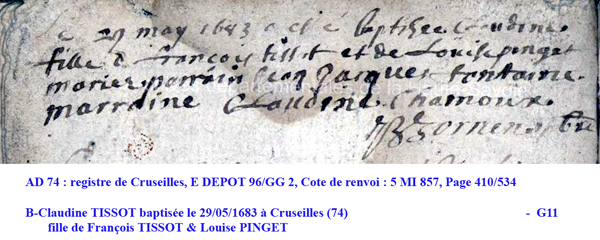 le 29 may 1683 a esté baptisée Claudine
fille d françois tissot et de Louise pinget
mariez parrain Jean Jacques fontaine
marraine Claudine Chamoux
AD 74 : registre de Cruseilles, E DEPOT 96/GG 2, Cote de renvoi : 5 MI 857, Page 410/534
B-Claudine TISSOT baptisée le 29/05/1683 à Cruseilles (74) - G11
fille de François TISSOT & Louise PINGET